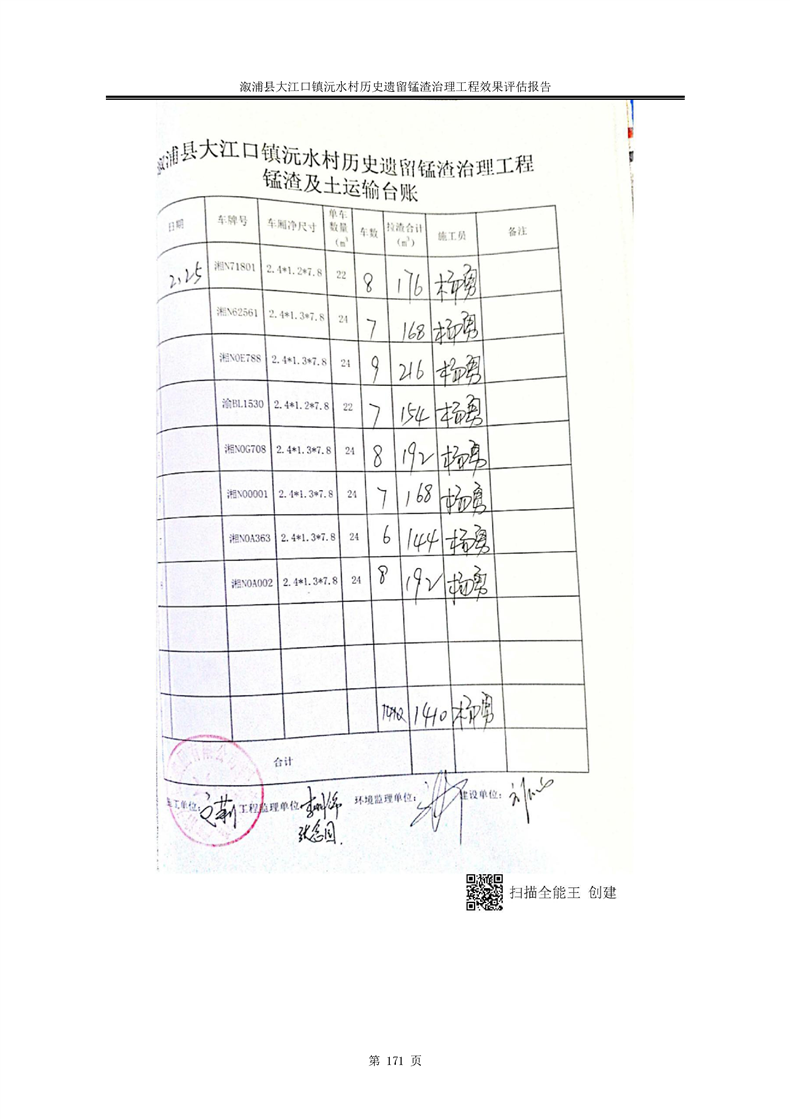 溆浦县大江口镇沅水村历史遗留锰渣治理工程效果评估报告
溆浦县大江口镇沅水村历史遗留锰渣治理工程
锰渣及土运输台账
日期 车牌号 车厢净尺寸 单车数量(m³) 车数 拉渣合计(m³) 施工员 备注
2.25 湘N71801 2.4*1.2*7.8 22 8 176 杨勇
湘N62561 2.4*1.3*7.8 24 7 168 杨勇
湘N0E788 2.4*1.3*7.8 24 9 216 杨勇
渝BL1530 2.4*1.2*7.8 22 7 154 杨勇
湘N0G708 2.4*1.3*7.8 24 8 192 杨勇
湘N00001 2.4*1.3*7.8 24 7 168 杨勇
湘N0A363 2.4*1.3*7.8 24 6 144 杨勇
湘N0A002 2.4*1.3*7.8 24 8 192 杨勇
1410 1410 杨勇
合计
施工单位: 工程监理单位: 环境监理单位: 建设单位:
扫描全能王 创建
第 171 页